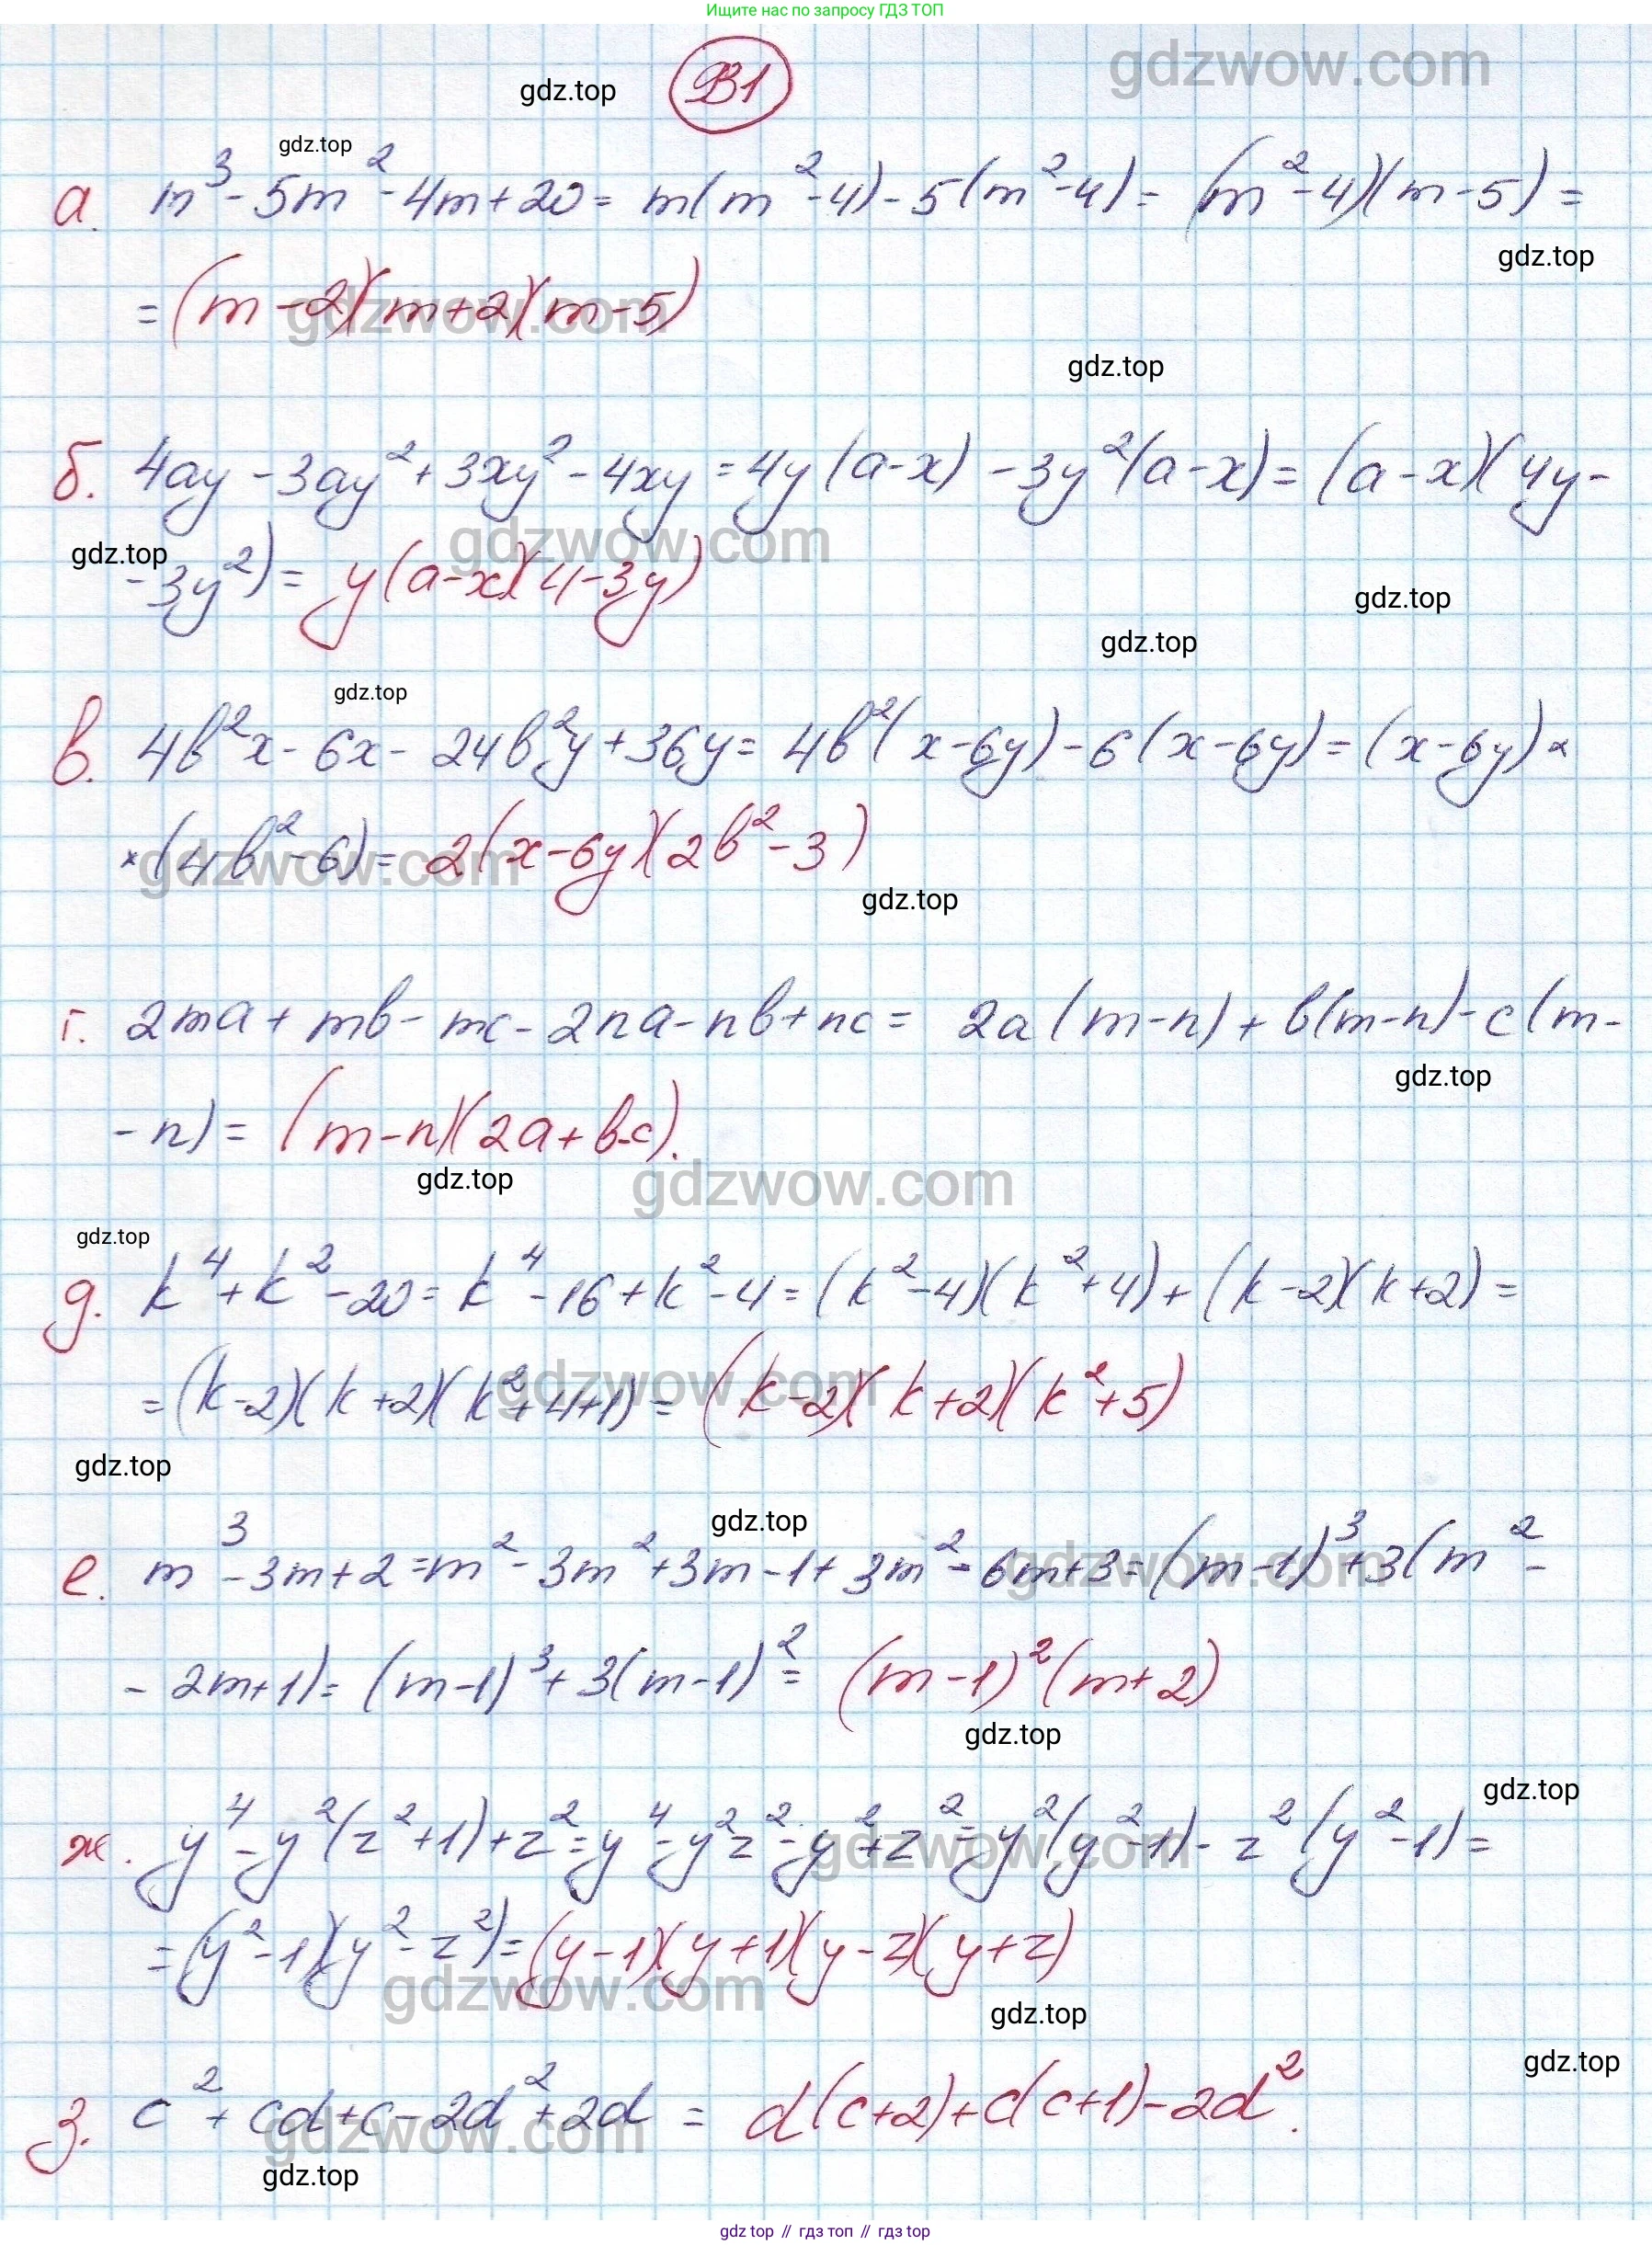 Ищите нас по запросу ГДЗ ТОП
gdzwow.com
gdz.top
B1
gdz.top
а. m³ - 5m² - 4m + 20 = m(m² - 4) - 5(m² - 4) = (m² - 4)(m - 5) =
gdz.top
= (m - 2)(m + 2)(m - 5)
gdzwow.com
gdz.top
б. 4ay - 3ay² + 3xy² - 4xy = 4y(a - x) - 3y²(a - x) = (a - x)(4y -
gdzwow.com
gdz.top
- 3y²) = y(a - x)(4 - 3y)
gdz.top
gdz.top
gdz.top
в. 4b²x - 6x - 24b²y + 36y = 4b²(x - 6y) - 6(x - 6y) = (x - 6y) ×
× (4b² - 6) = 2(x - 6y)(2b² - 3)
gdzwow.com
gdz.top
г. 2ma + mb - mc - 2na - nb + nc = 2a(m - n) + b(m - n) - c(m -
gdz.top
- n) = (m - n)(2a + b - c).
gdz.top
gdzwow.com
gdz.top
д. k⁴ + k² - 20 = k⁴ - 16 + k² - 4 = (k² - 4)(k² + 4) + (k - 2)(k + 2) =
= (k - 2)(k + 2)(k² + 4 + 1) = (k - 2)(k + 2)(k² + 5)
gdzwow.com
gdz.top
gdz.top
е. m³ - 3m + 2 = m² - 3m² + 3m - 1 + 3m² - 6m + 3 = (m - 1)³ + 3(m² -
gdzwow.com
- 2m + 1) = (m - 1)³ + 3(m - 1)² = (m - 1)²(m + 2)
gdz.top
gdz.top
ж. y⁴ - y²(z² + 1) + z² = y⁴ - y²z² - y² + z² = y²(y² - 1) - z²(y² - 1) =
gdzwow.com
= (y² - 1)(y² - z²) = (y - 1)(y + 1)(y - z)(y + z)
gdzwow.com
gdz.top
gdz.top
з. c² + cd + c - 2d² + 2d = d(c + 2) + c(c + 1) - 2d².
gdzwow.com
gdz.top
gdz top // гдз топ // гдз top